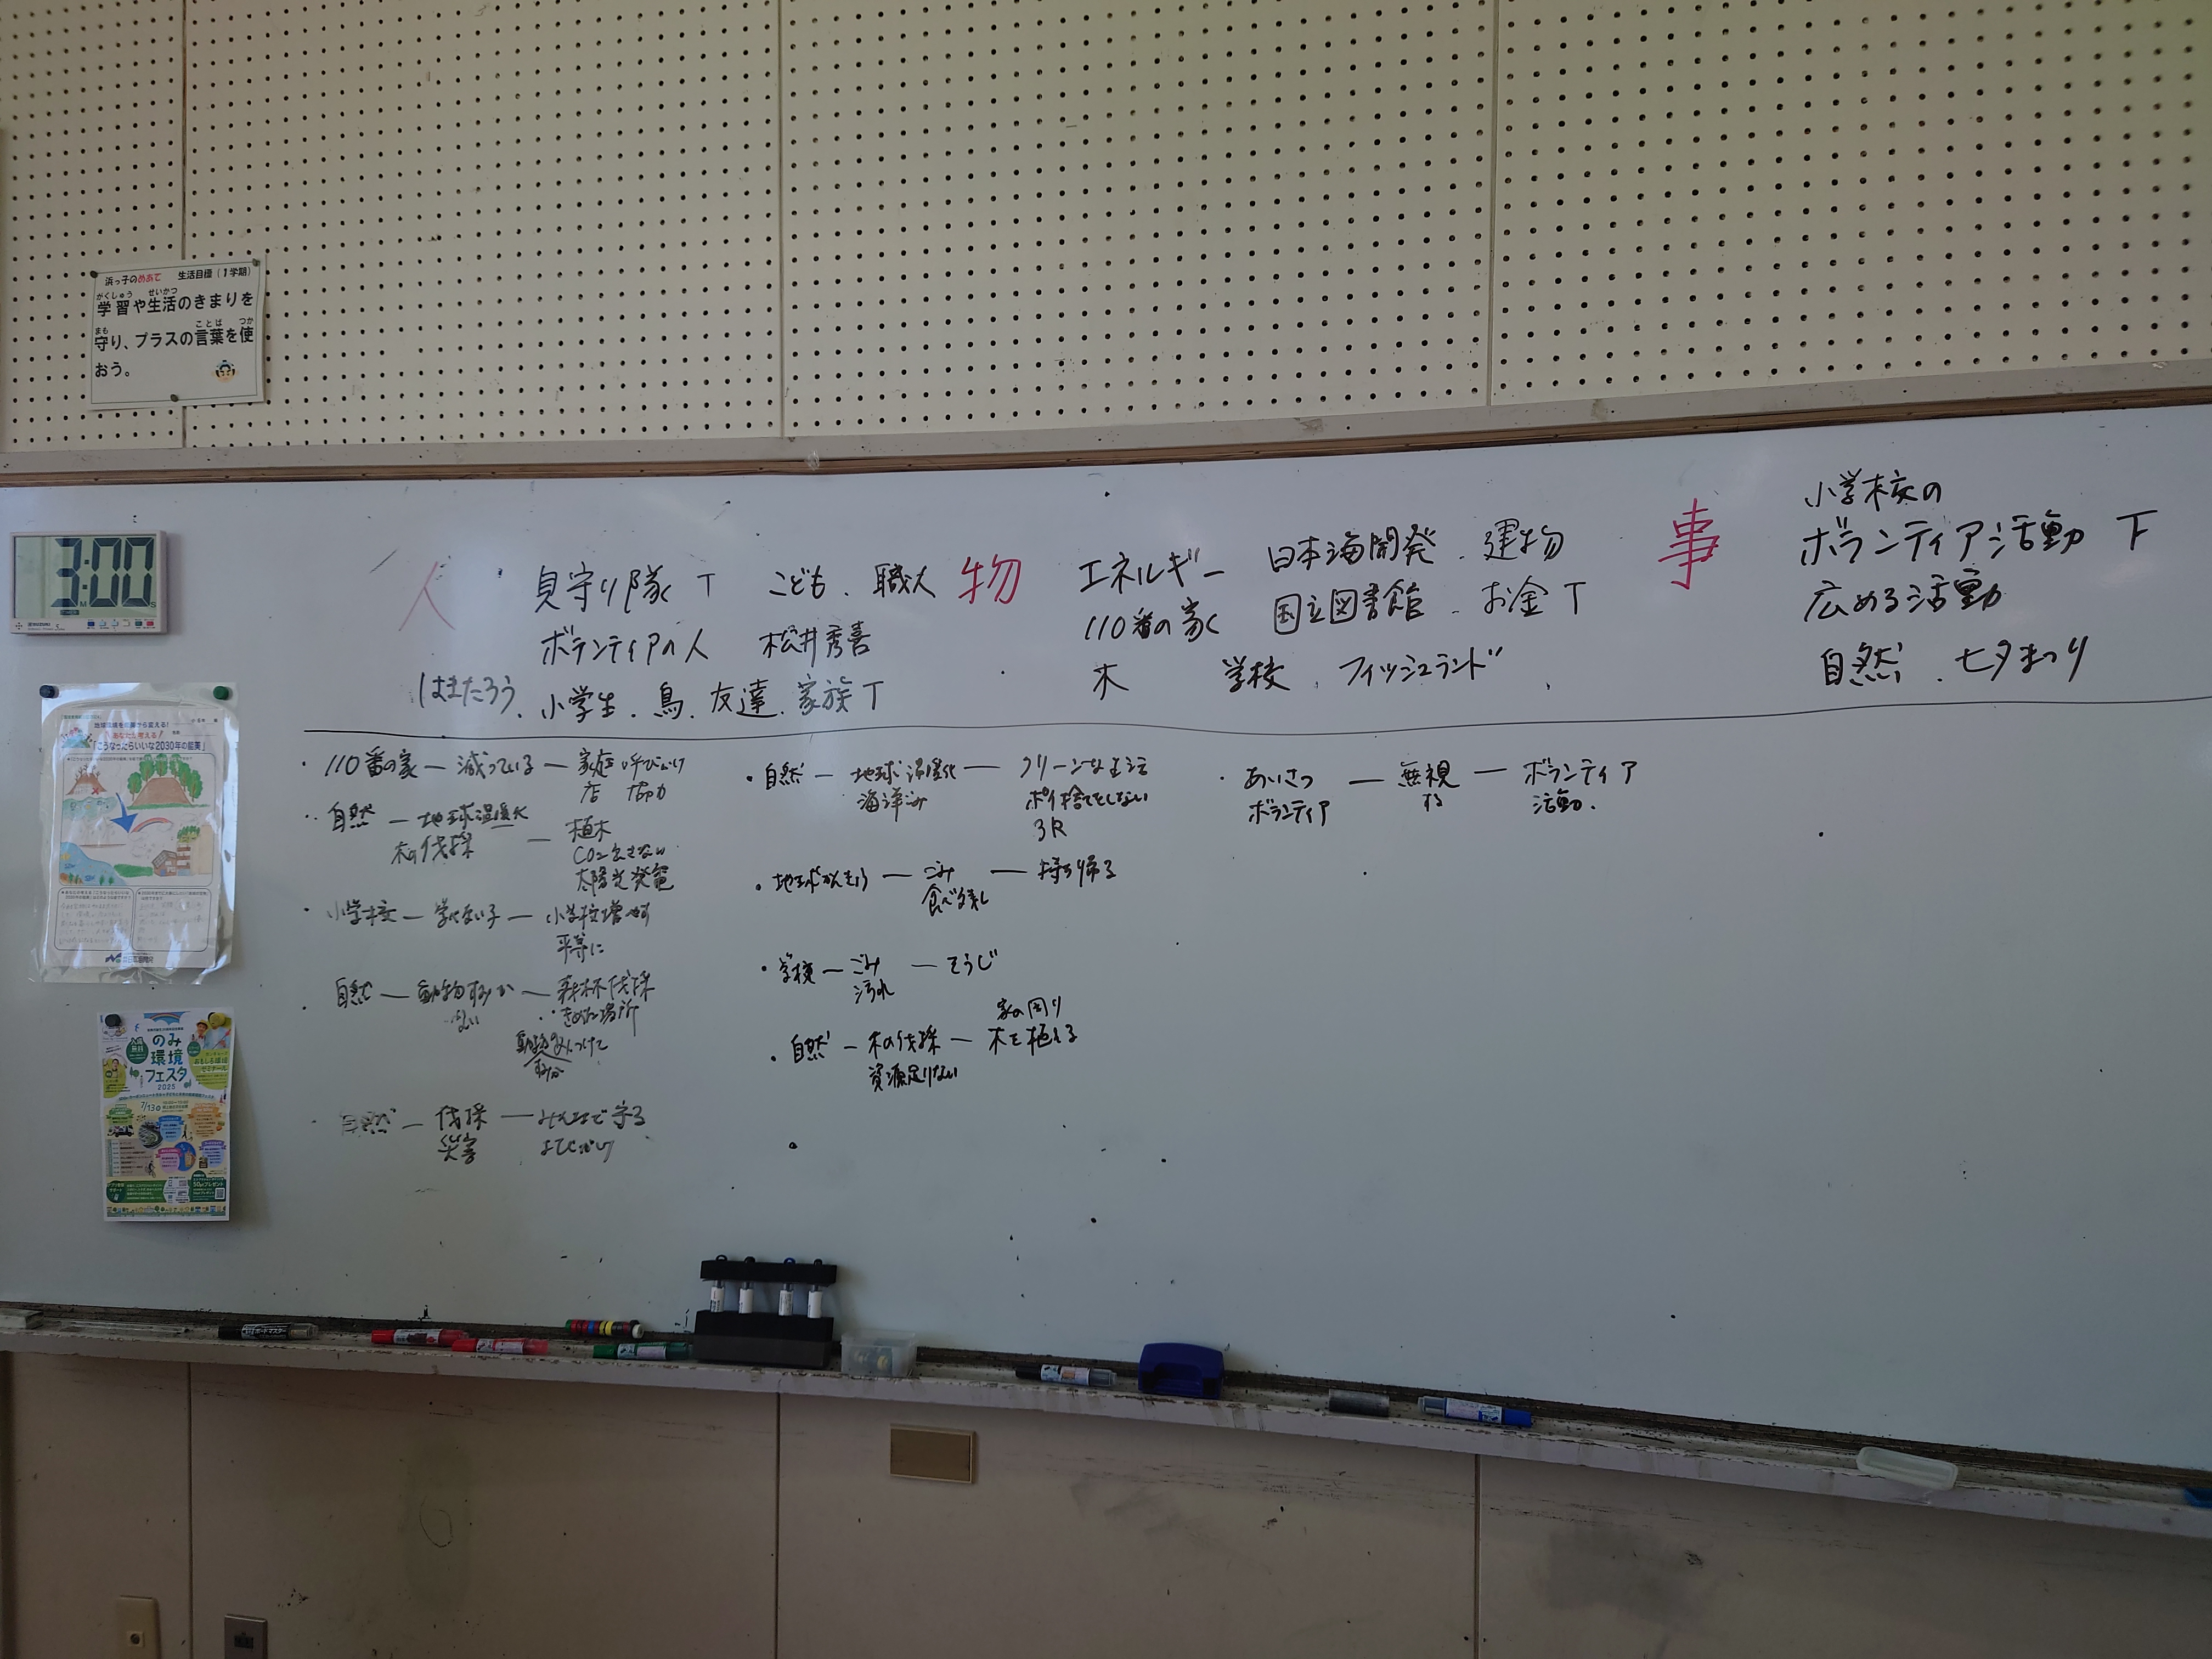 浜っ子のめあて 生活目標（1学期）
学習や生活のきまりを
守り、プラスの言葉を使
おう。
3:00
人
見守り隊 T こども、職人
ボランティアの人 松井秀喜
はまたろう、小学生、鳥、友達、家族 T
物
エネルギー 日本海開発、建物
110番の家 国立図書館、お金 T
木 学校、フィッシュランド
事
小学校の
ボランティア活動 T
広める活動
自然、七夕まつり
・110番の家 — 減っている — 家庭 呼びかけ
店 協力
・自然 — 地球温暖化
木の伐採 — 植木
CO2出さない
太陽光発電
・小学校 — 学べない子 — 小学校増やす
平等に
・自然 — 動物すみか — 森林伐採
ない きめた場所
すみか
・自然 — 伐採 — みんなで守る
災害
・自然 — 地球温暖化 — クリーンな生活
海洋ごみ ポイ捨てをしない
3R
・地球かんきょう — ごみ — 持ち帰る
食べ残し
・学校 — ごみ — そうじ
汚れ
家の周り
・自然 — 木の伐採 — 木を植える
資源足りない
・あいさつ — 無視 — ボランティア
ボランティア する 活動.
あなたも考える！
「こうなったらいいな2030年の能美」
のみ
環境
フェスタ
2025
7/13